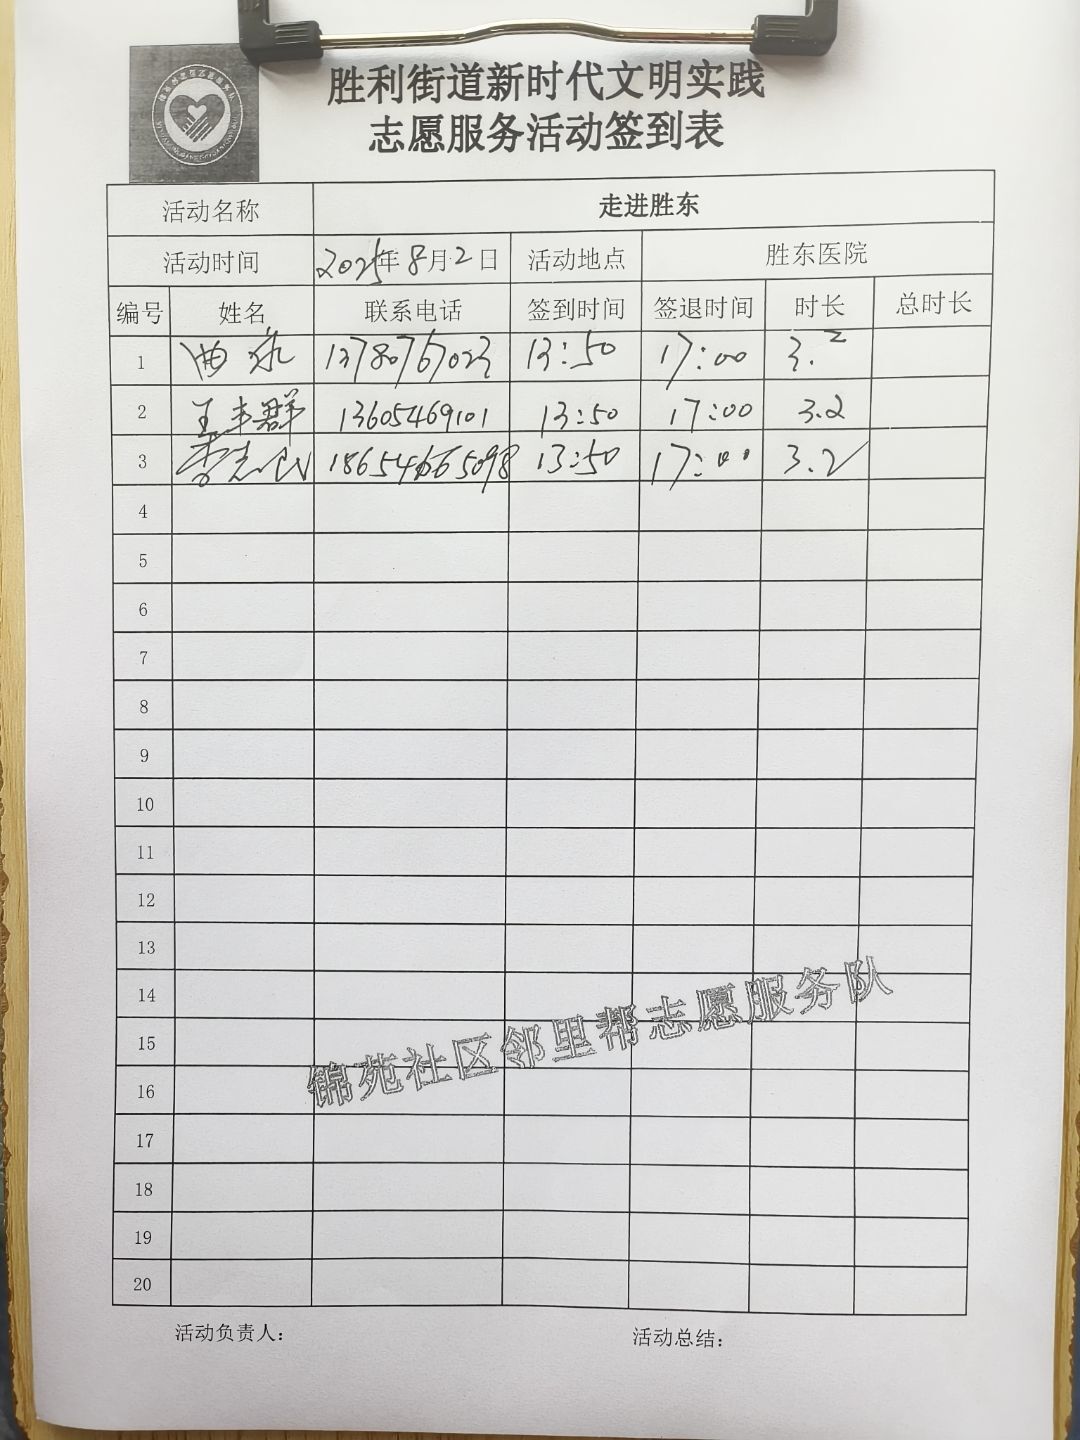 胜利街道新时代文明实践
志愿服务活动签到表
活动名称 走进胜东
活动时间 2025年8月2日 活动地点 胜东医院
编号 姓名 联系电话 签到时间 签退时间 时长 总时长
1 曲泳 13780767023 13:50 17:00 3.2
2 王丰群 13605469101 13:50 17:00 3.2
3 李志民 18654665098 13:50 17:00 3.2
4
5
6
7
8
9
10
11
12
13
14
15
16
17
18
19
20
锦苑社区邻里帮志愿服务队
活动负责人: 活动总结: